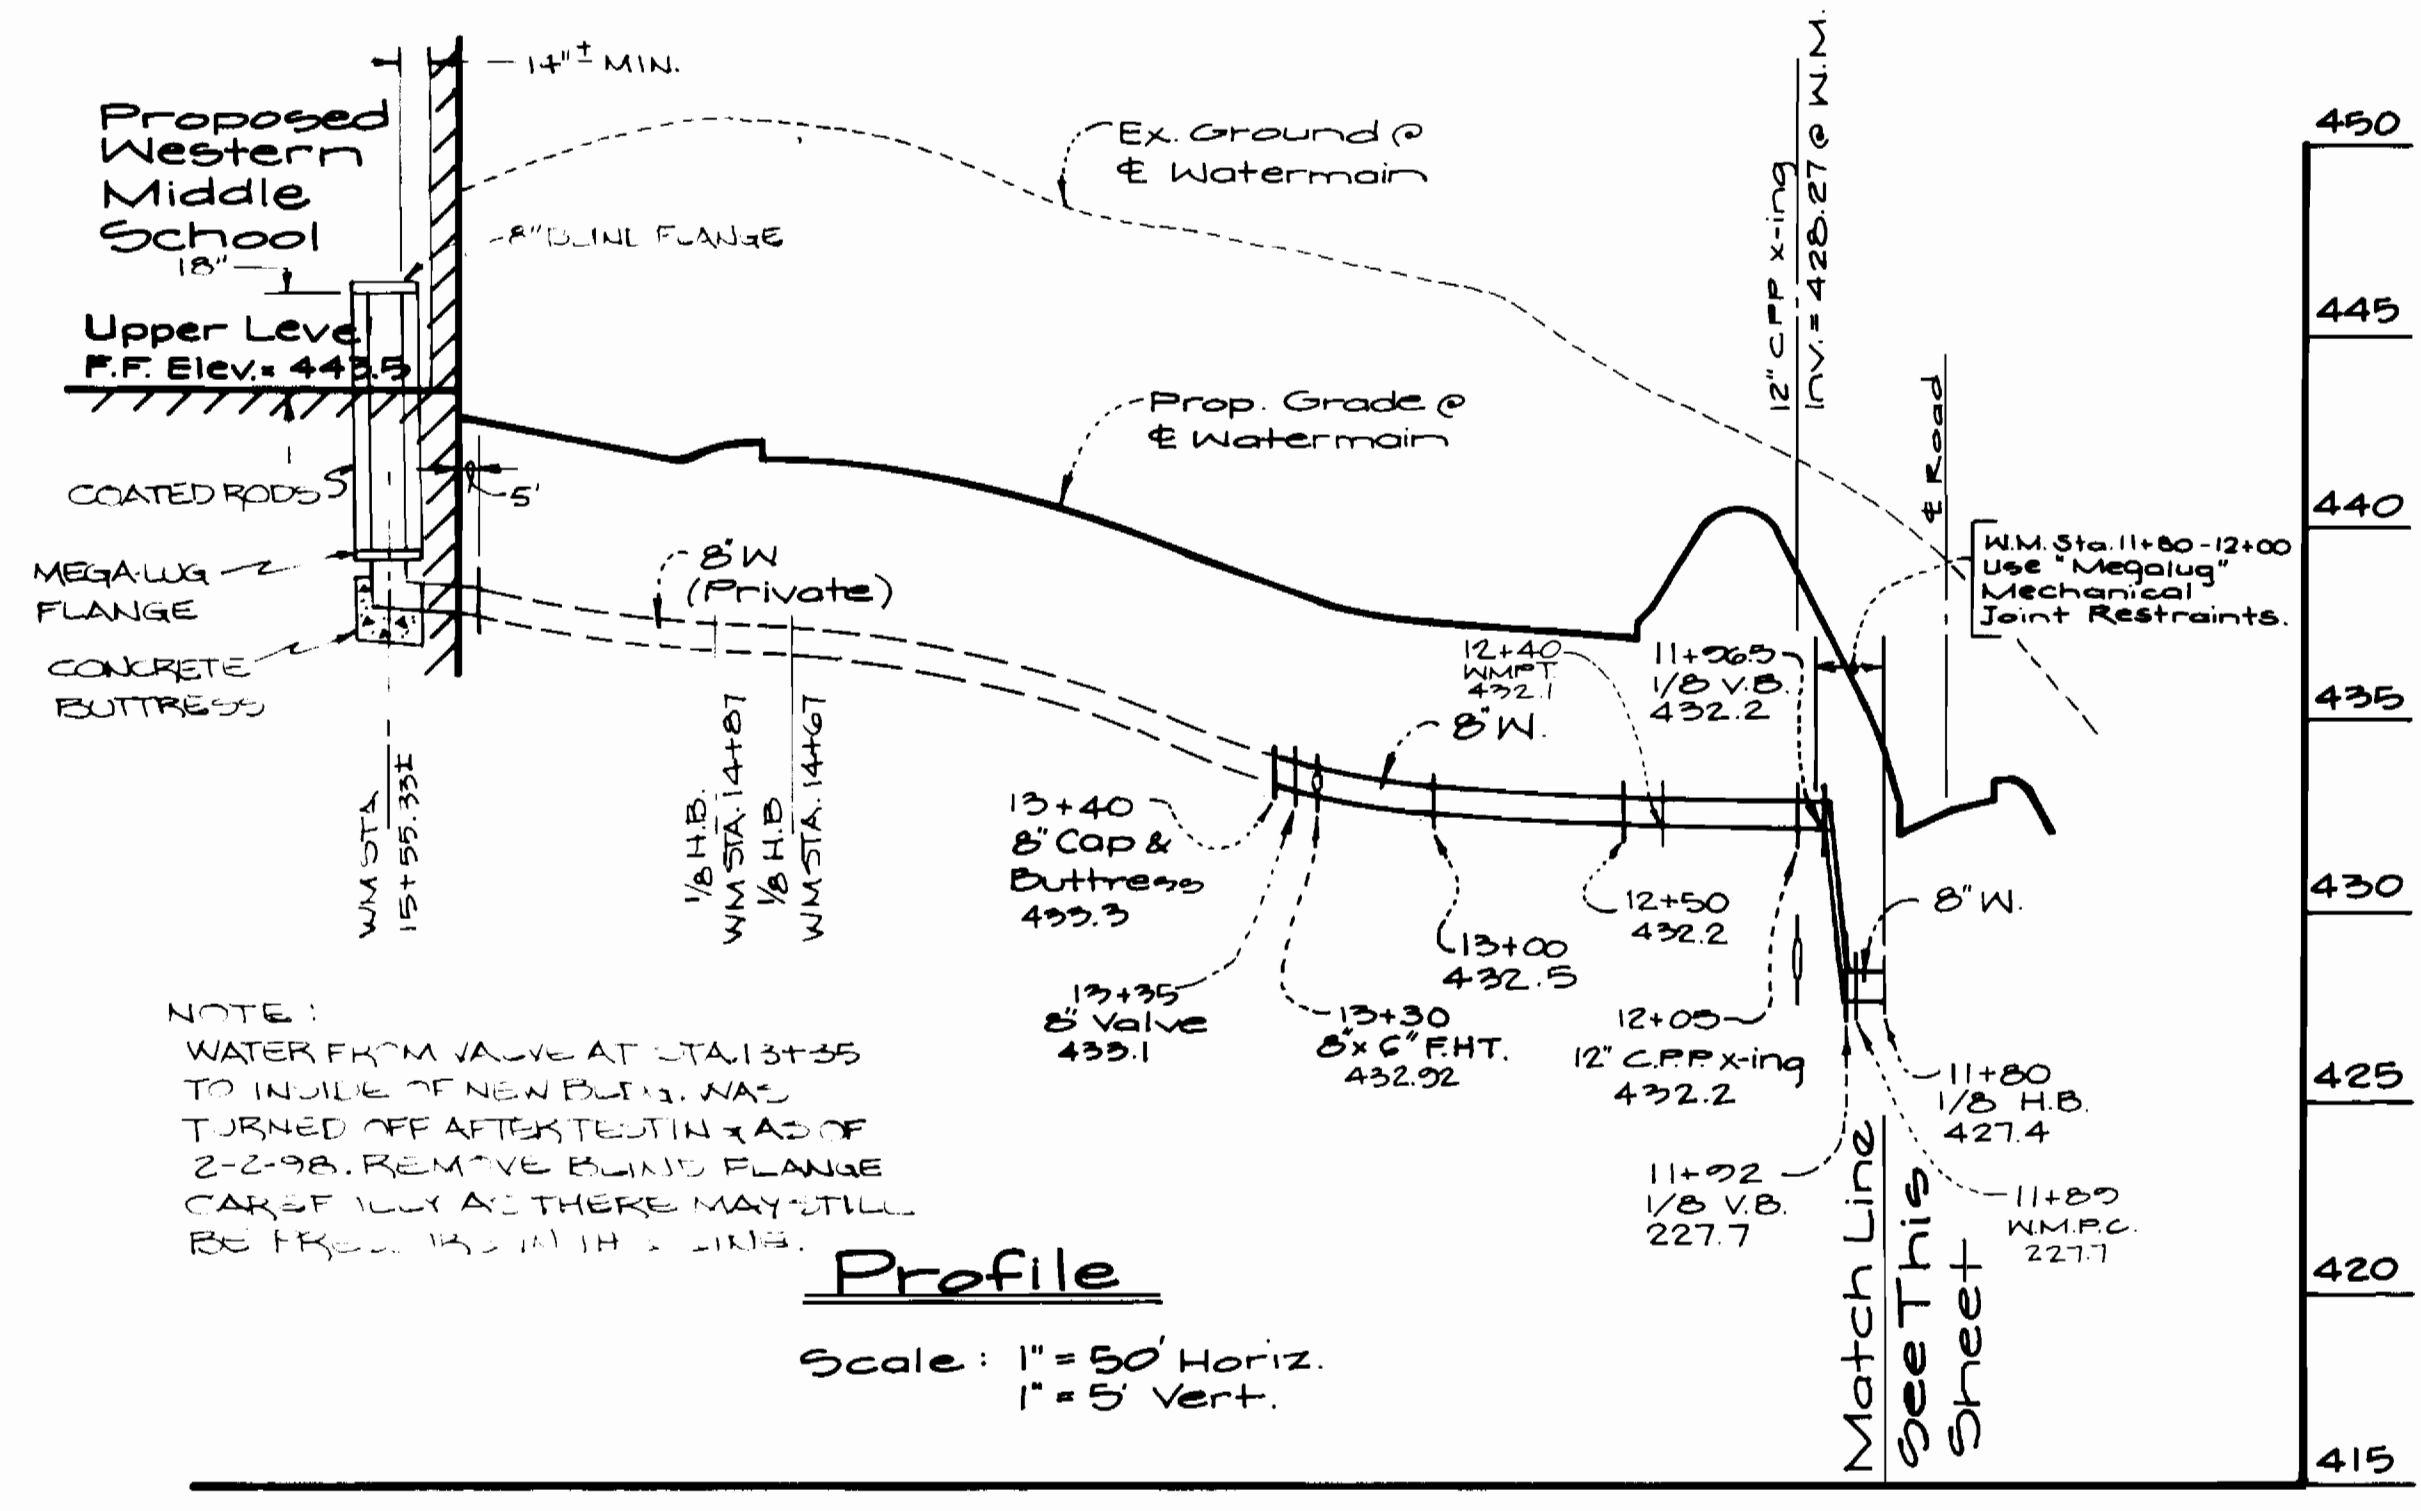 14"± MIN.
Proposed
Western
Middle
School
18"
8" BLIND FLANGE
Upper Level
F.F. Elev.= 443.5
COATED RODS
5'
MEGA-LUG
FLANGE
CONCRETE
BUTTRESS
WM STA
15+55.33±
Ex. Ground @
℄ Watermain
Prop. Grade @
℄ Watermain
8"W
(Private)
1/8 H.B.
WM STA. 14+87
1/8 H.B
WM STA. 14+67
12" C.P.P x-ing
Inv. = 428.27 @ W.M.
℄ Road
W.M. Sta. 11+80-12+00
Use "Megalug"
Mechanical
Joint Restraints.
12+40
WMPT.
432.1
11+96.5
1/8 V.B.
432.2
8"W.
13+40
8" Cap &
Buttress
433.3
13+35
8" Valve
433.1
13+30
8"x 6" F.HT.
432.92
13+00
432.5
12+50
432.2
12+05
12" C.P.P x-ing
432.2
8"W.
11+80
1/8 H.B.
427.4
11+92
1/8 V.B.
227.7
11+89
W.M.P.C.
227.7
Match Line
See This
Sheet
NOTE:
WATER FROM VALVE AT STA.13+35
TO INSIDE OF NEW BLDG. WAS
TURNED OFF AFTER TESTING AS OF
2-2-98. REMOVE BLIND FLANGE
CAREFULLY AS THERE MAY STILL
BE IN LINE.
Profile
Scale: 1" = 50' Horiz.
1" = 5' Vert.
450
445
440
435
430
425
420
415